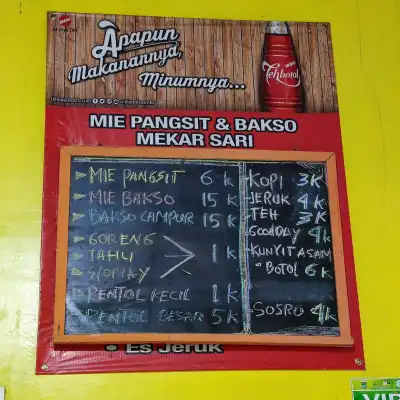 Apapun
Makanannya,
Minumnya...
Tehbotol
MIE PANGSIT & BAKSO
MEKAR SARI
MIE PANGSIT 6K
MIE BAKSO 15K
BAKSO CAMPUR 15K
GORENG
TAHU
SIOMAY
1K
PENTOL KECIL 1K
PENTOL BESAR 5K
KOPI 3K
JERUK 4K
TEH 3K
GOODDAY 4K
KUNYIT ASAM
BOTOL 6K
SOSRO 4K
• Es Jeruk